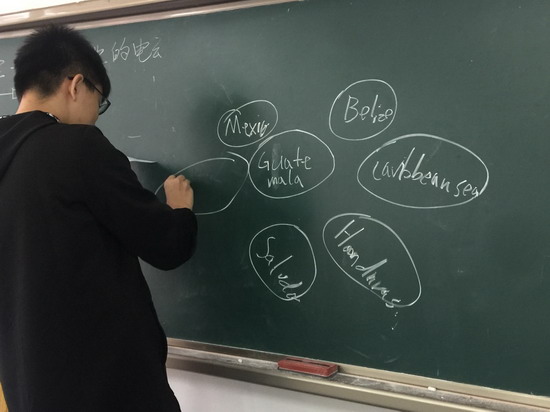 的电
Mexico
Belize
Guate
mala
Caribbean sea
Salvador
Honduras